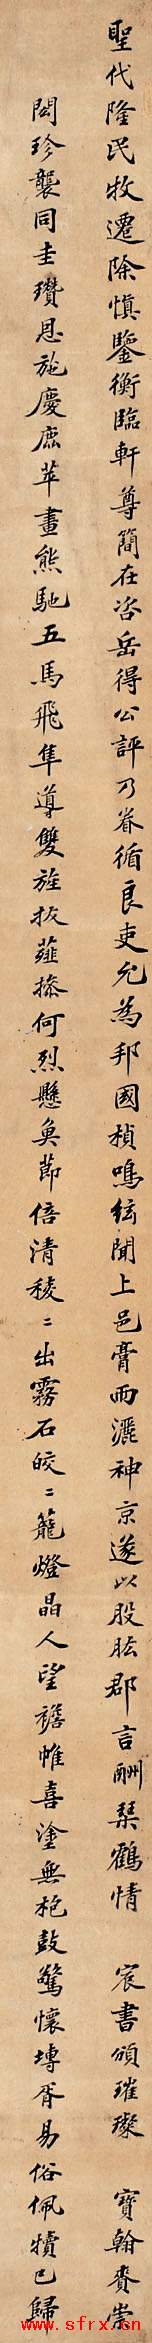 聖代隆民牧遷除慎鑒衡臨軒尊簡在咨岳得公評乃眷循良吏允為邦國楨鳴絃聞上邑膏雨灑神京遂以股肱郡言酬琴鶴情 宸書頒璀璨 寶翰賚崇
閎珍襲同圭瓚恩施慶鹿苹畫熊馳五馬飛隼導雙旌拔薤操何烈懸魚節倍清稜〻出霧石皎〻籠燈晶人望襜帷喜塗無枹鼓驚懷塼胥易俗佩犢已歸
www.sfrx.cn